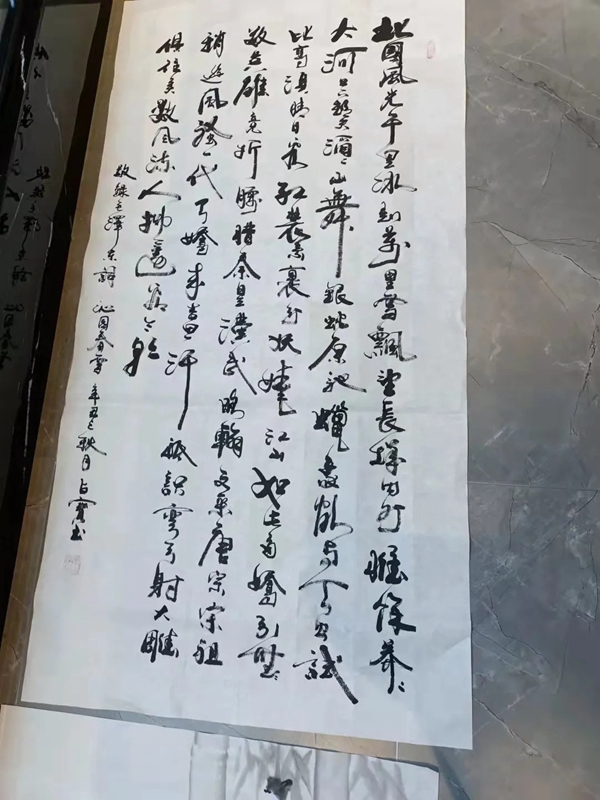 北國風光千里冰封萬里雪飄望長城内外惟餘莽〻
大河上下頓失滔〻山舞銀蛇原馳蠟象欲与天公試
比高須晴日看紅裝素裹分外妖嬈江山如此多嬌引無
數英雄競折腰惜秦皇漢武略輸文采唐宗宋祖
稍遜風騷一代天嬌成吉思汗祗識彎弓射大雕
俱往矣數風流人物還看今朝
敬錄毛澤東詞 沁园春雪 秋月 書